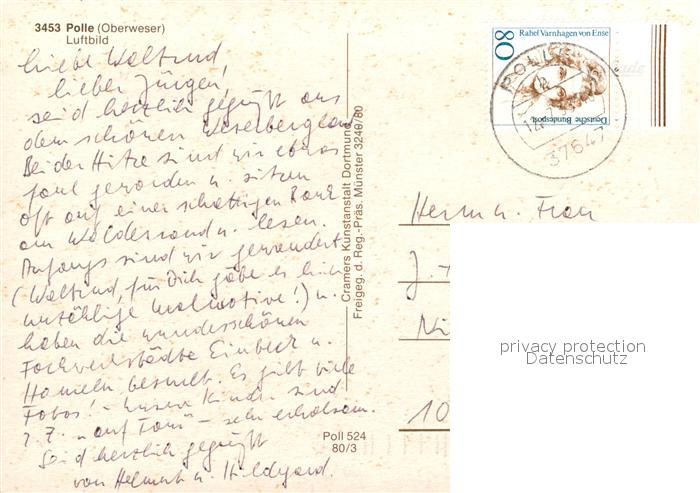 3453 Polle (Oberweser)
Luftbild
Liebe Waltrud,
lieber Jürgen,
seid herzlich gegrüßt aus
dem schönen Weserbergland
Bei der Hitze sind wir etwas
faul geworden u. sitzen
oft auf einer schattigen Bank
am Waldesrand u. lesen.
Anfangs sind wir gewandert
(Waltrud, für Dich gäbe es hier
unzählige Malmotive!) u.
haben die wunderschönen
Fachwerkstädte Einbeck u.
Hameln besucht. Es gibt viele
Fotos! - Unsere Kinder sind
z.Z. "auf Tour" - sehr erholsam.
Seid herzlich gegrüßt
von Helmut u. Hildgard.
Cramers Kunstanstalt Dortmund
Freigeg. d. Reg.-Präs. Münster 3240/80
Poll 524
80/3
80
Rahel Varnhagen von Ense
Deutsche Bundespost
POLLE
37647
Herrn u. Frau
J.
Ni
10
privacy protection
Datenschutz